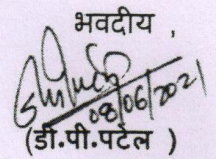 भवदीय ,
08/06/2021
(डी.पी.पटेल )